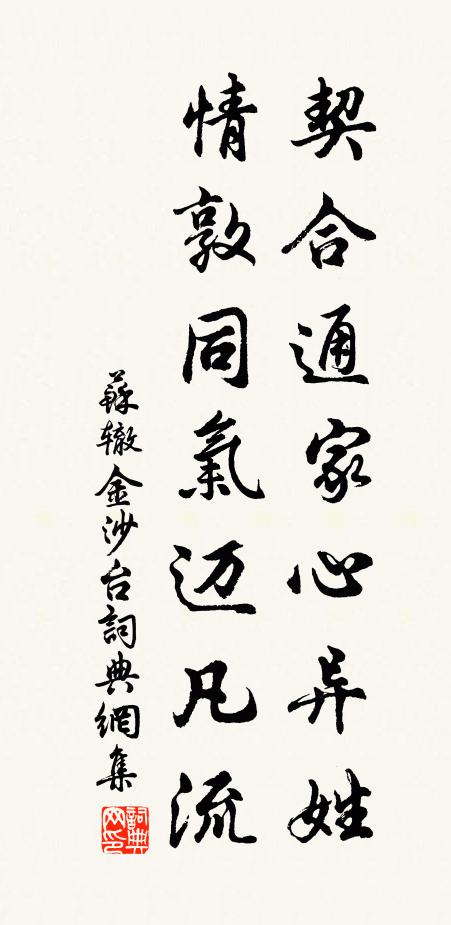 契合通家心异姓
情敦同氣迈凡流
蘇辙金沙台詞典網集
詞典网印